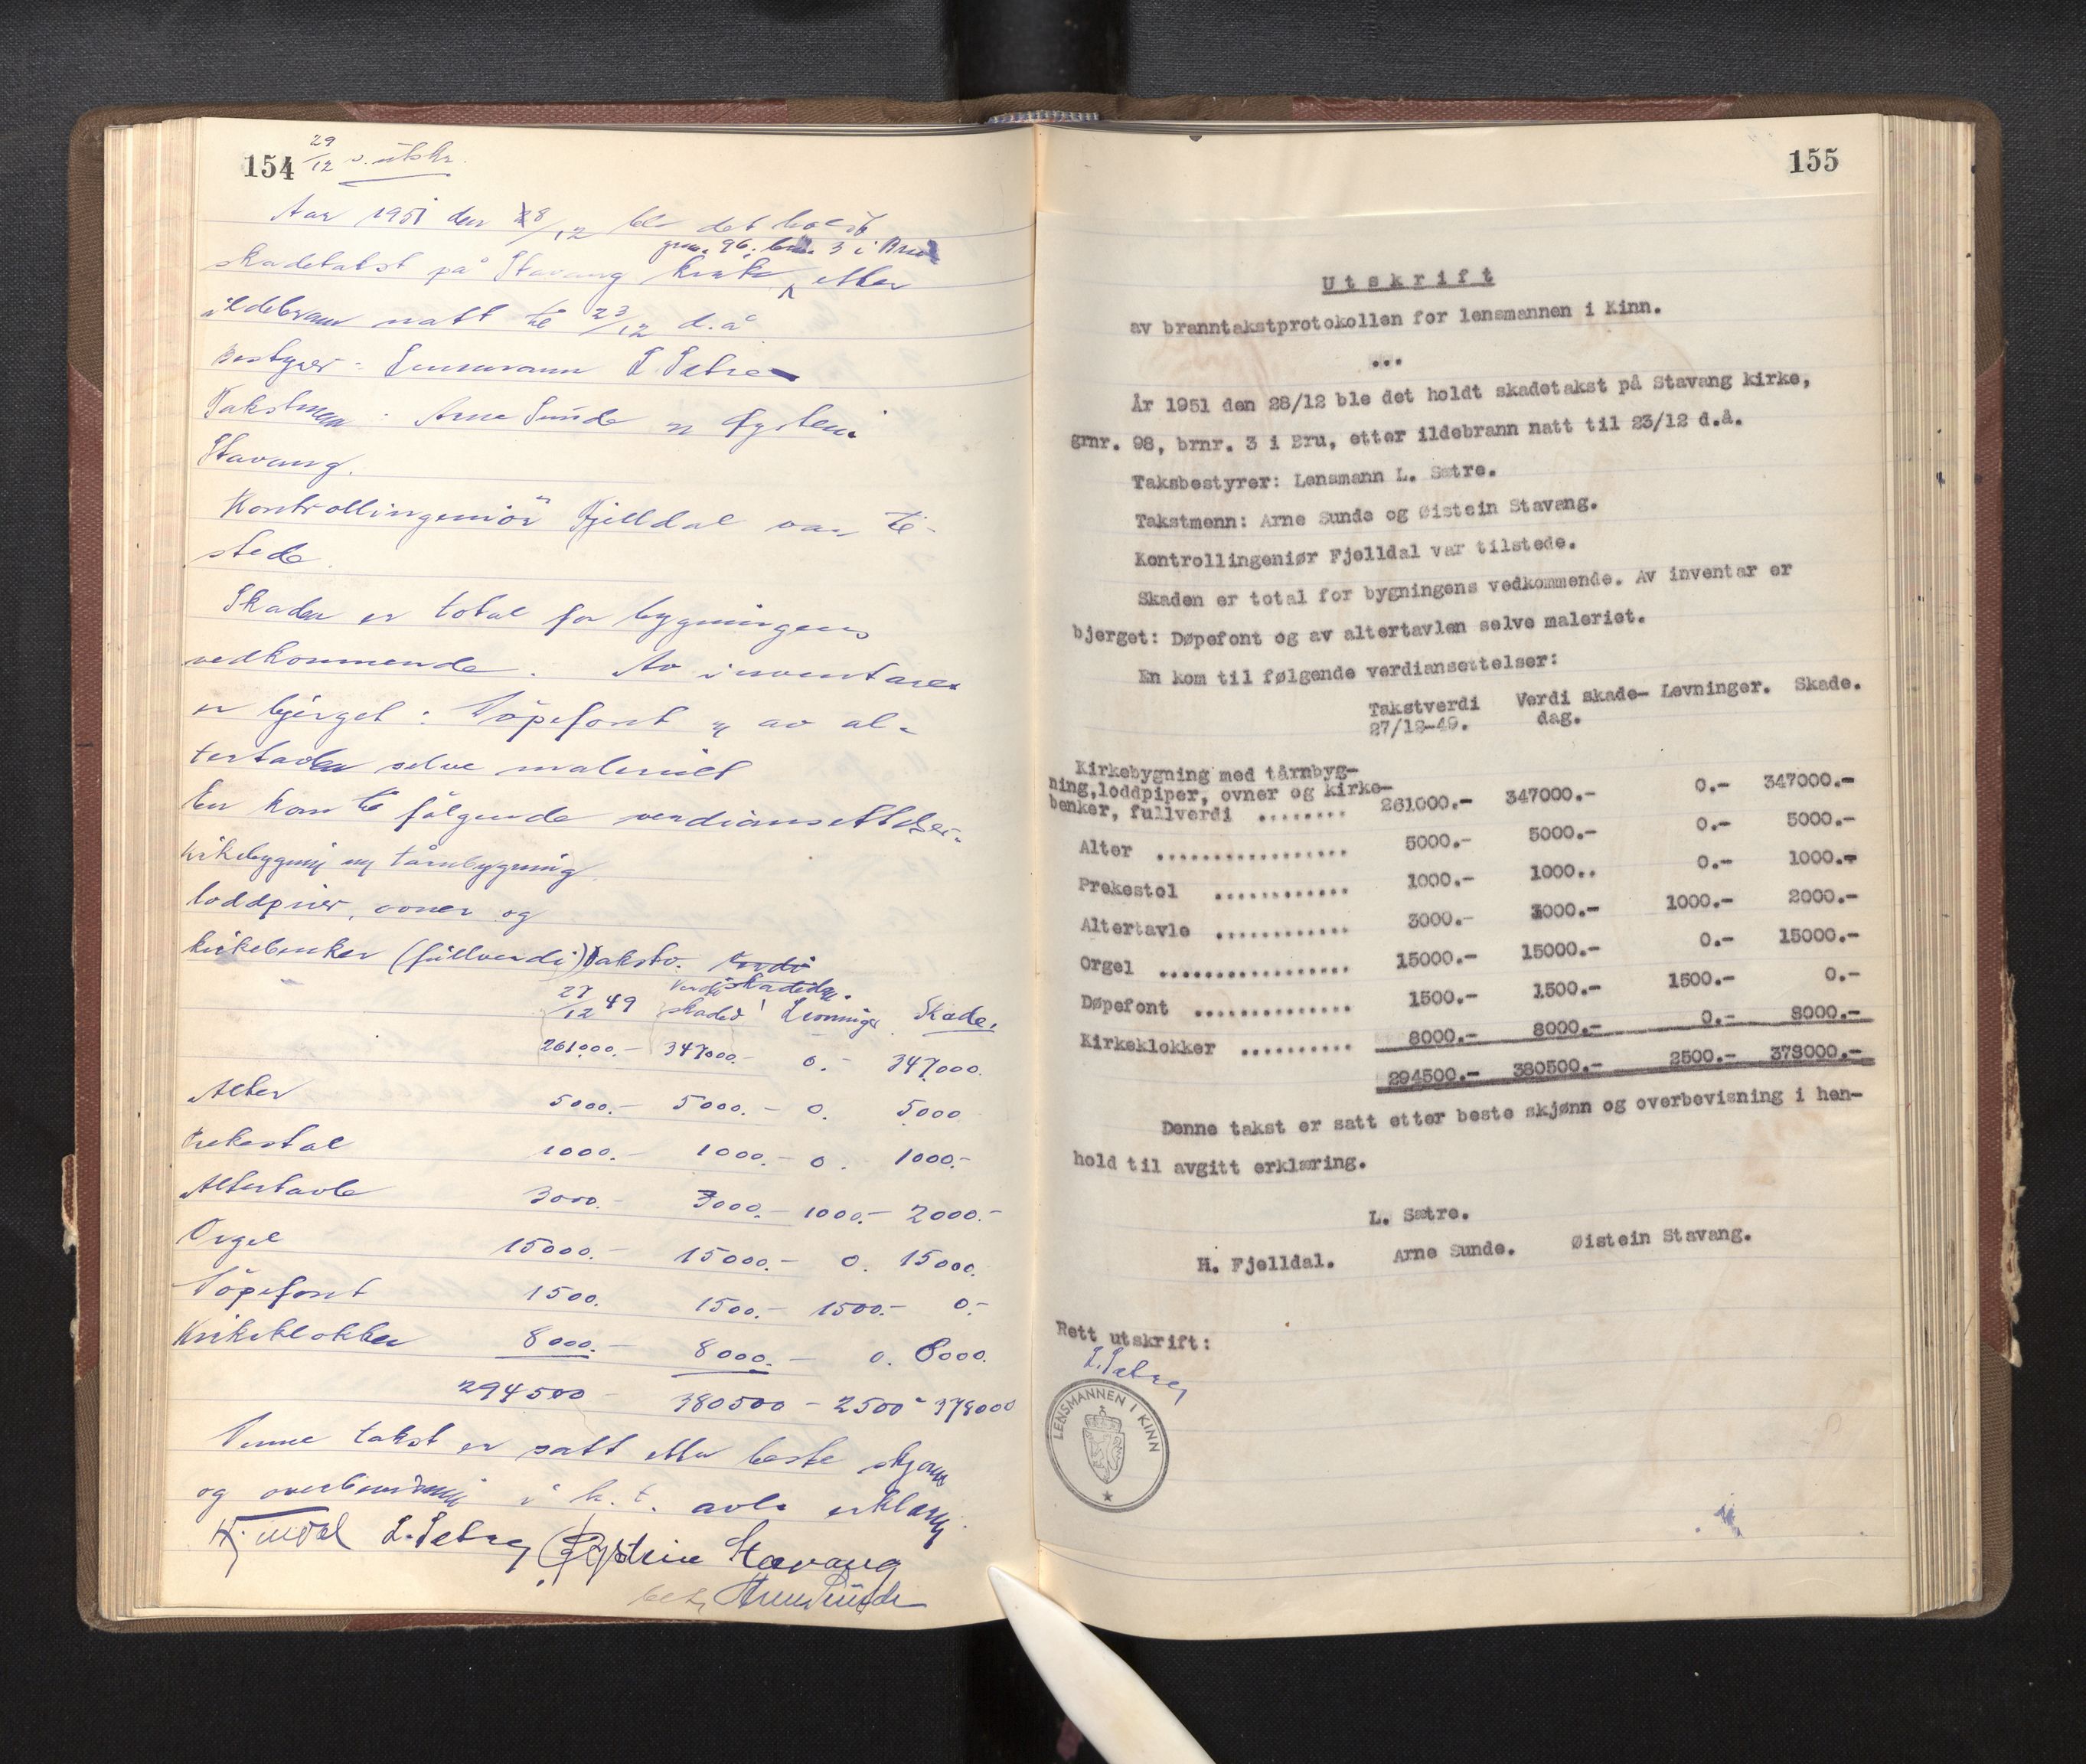 154
29/12 s. utskr.
Aar 1951 den 28/12 ble det holdt
grnr. 96, brnr. 3 i Bru
skadetakst på Stavang kirke etter
ildebrann natt til 23/12 d.å
Bestyrer: Lensmann L. Sætre
Takstmenn: Arne Sunde og Øystein
Stavang.
Kontrollingeniør Fjelldal var til-
stede.
Skaden er total for bygningens
vedkommende. Av inventaret
er bjerget: Døpefont og av al-
tertavlen selve maleriet
En kom til følgende verdiansettelser:
Kirkebygning og tårnbygning
loddpiper, ovner og
kirkebenker (fullverdi) Takstv. Verdi
skadedag.
27/12 49 Verdi skaded Levninger Skade.
261000.- 347000.- 0.- 347000.
Alter 5000.- 5000.- 0. 5000
Prekestol 1000.- 1000.- 0. 1000.-
Altertavle 3000.- 3000.- 1000.- 2000.-
Orgel 15000.- 15000.- 0. 15000.
Døpefont 1500. 1500.- 1500.- 0.-
Kirkeklokker 8000.- 8000.- 0. 8000.
294500 - 380500 - 2500 - 378000
Denne takst er satt etter beste skjønn
og overbevisning i h. t. avla erklæring.
L. Sætre Øystein Stavang
Arne Sunde
155
Utskrift
av branntakstprotokollen for lensmannen i Kinn.
...
År 1951 den 28/12 ble det holdt skadetakst på Stavang kirke,
grnr. 98, brnr. 3 i Bru, etter ildebrann natt til 23/12 d.å.
Taksbestyrer: Lensmann L. Sætre.
Takstmenn: Arne Sunde og Øistein Stavang.
Kontrollingeniør Fjelldal var tilstede.
Skaden er total for bygningens vedkommende. Av inventar er
bjerget: Døpefont og av altertavlen selve maleriet.
En kom til følgende verdiansettelser:
Takstverdi Verdi skade- Levninger. Skade.
27/12-49. dag.
Kirkebygning med tårnbyg-
ning,loddpiper, ovner og kirke-
benker, fullverdi ........ 261000.- 347000.- 0.- 347000.-
Alter ................. 5000.- 5000.- 0.- 5000.-
Prekestol ............ 1000.- 1000.. 0.- 1000.-
Altertavle ............ 3000.- 3000.- 1000.- 2000.-
Orgel ................. 15000.- 15000.- 0.- 15000.-
Døpefont .............. 1500.- 1500.- 1500.- 0.-
Kirkeklokker .......... 8000.- 8000.- 0.- 8000.-
294500.- 380500.- 2500.- 378000.-
Denne takst er satt etter beste skjønn og overbevisning i hen-
hold til avgitt erklæring.
L. Sætre.
H. Fjelldal. Arne Sunde. Øistein Stavang.
Rett utskrift:
L. Sætre
LENSMANNEN I KINN